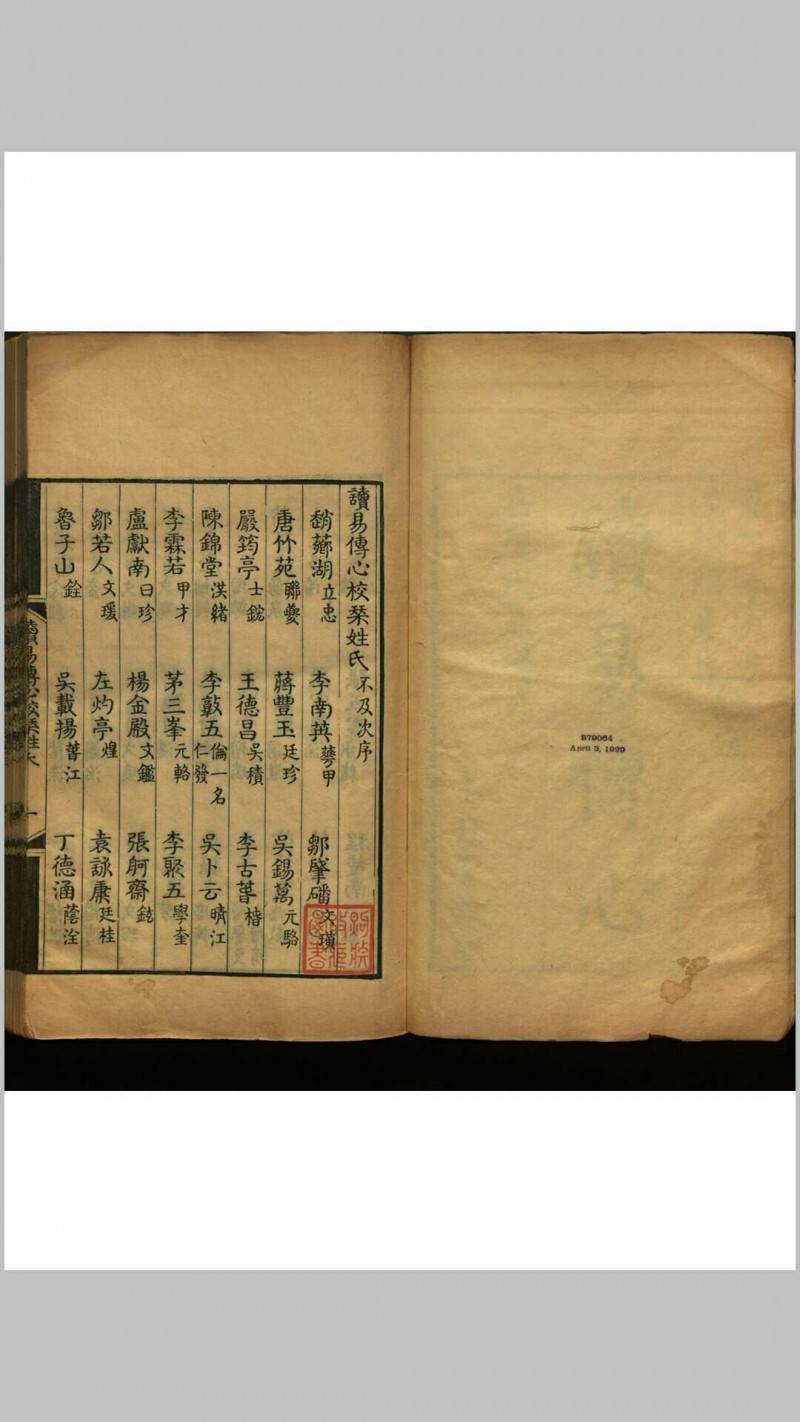 讀易傳心校栞姓氏 不及次序
嵇薌湖 立忠 李南英 蕚甲 鄒肇磻 文璜
唐竹苑 聯夔 蔣豐玉 廷珍 吳錫萬 元駱
嚴筠亭 士鋐 王德昌 吳積 李古葊 楷
陳錦堂 淇緒 李鼓五 倫一名仁發 吳卜云 晴江
李霖若 甲才 茅三峯 元輅 李聚五 學奎
盧獻南 曰珍 楊金殿 文鑑 張舸齋 鉉
鄒若人 文瑗 左灼亭 煌 袁詠康 廷桂
魯子山 銓 吳載揚 菁江 丁德涵 蔭淦
讀易傳心校栞姓氏 一
B79064
April 3, 1929